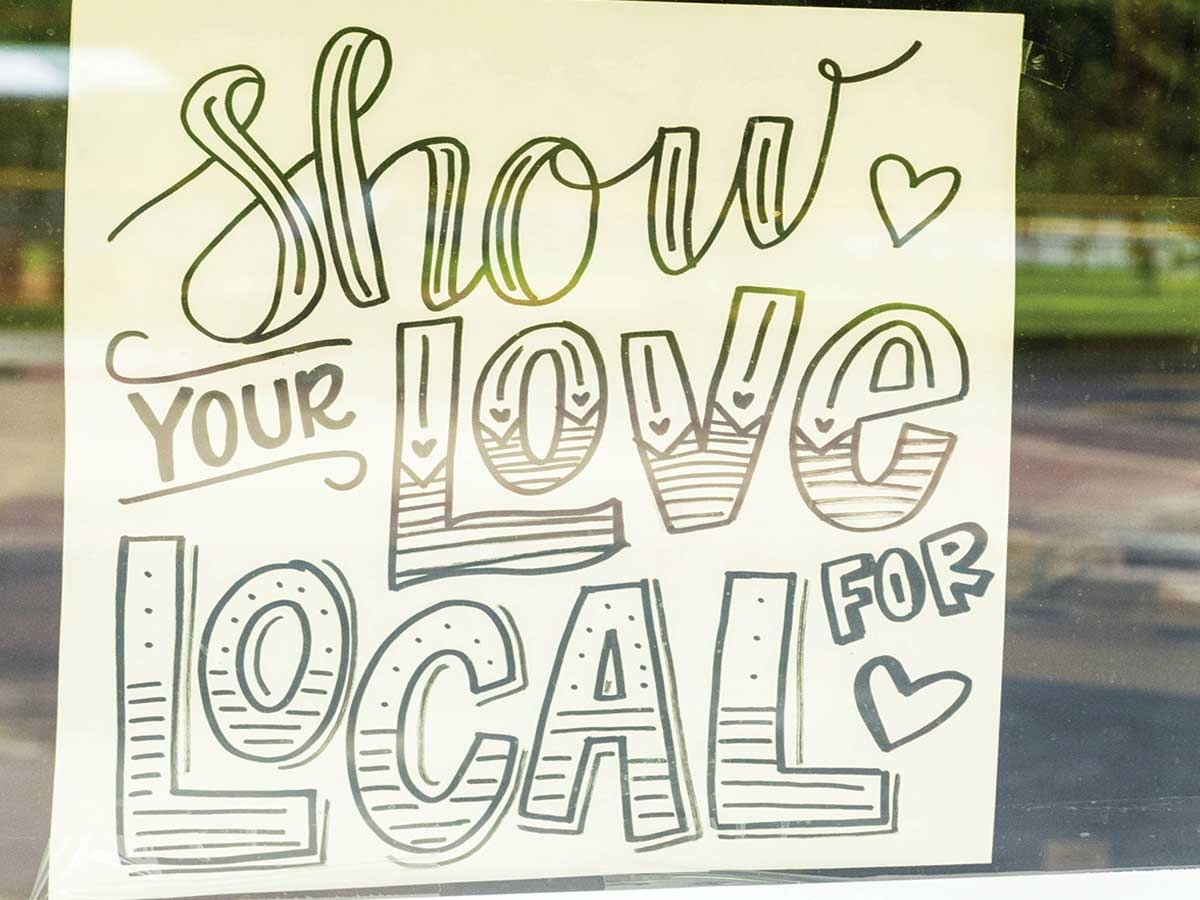 Show
YOUR LOVE
FOR
LOCAL